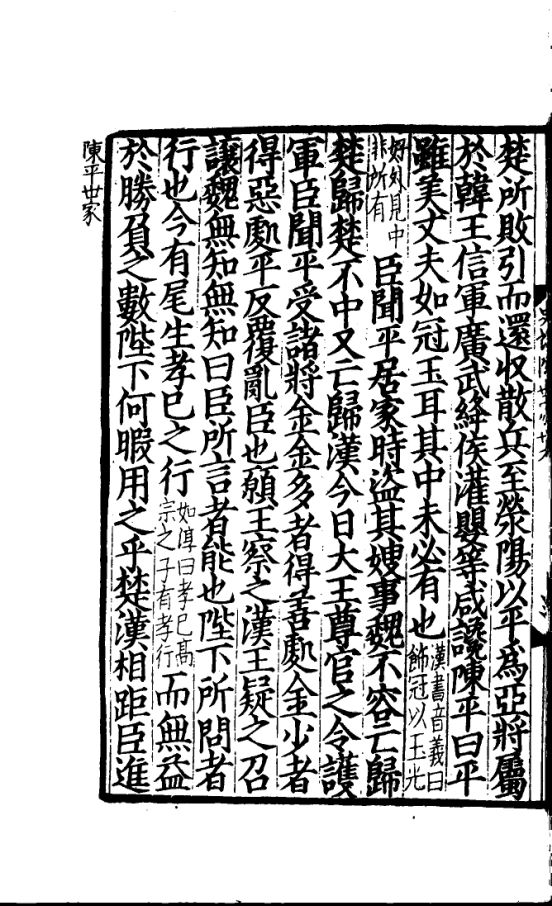 楚所敗引而還収散兵至滎陽以平為亞將屬
於韓王信軍廣武絳侯灌嬰等咸讒陳平曰平
雖美丈夫如冠玉耳其中未必有也漢書音義曰飾冠以玉光
好外見中非所有臣聞平居家時盜其嫂事魏不容亡歸
楚歸楚不中又亡歸漢今日大王尊官之令護
軍臣聞平受諸將金金多者得善處金少者
得惡處平反覆亂臣也願王察之漢王疑之召
讓魏無知無知曰臣所言者能也陛下所問者
行也今有尾生孝已之行如淳曰孝已高宗之子有孝行而無益
於勝負之數陛下何暇用之乎楚漢相距臣進
陳平世家